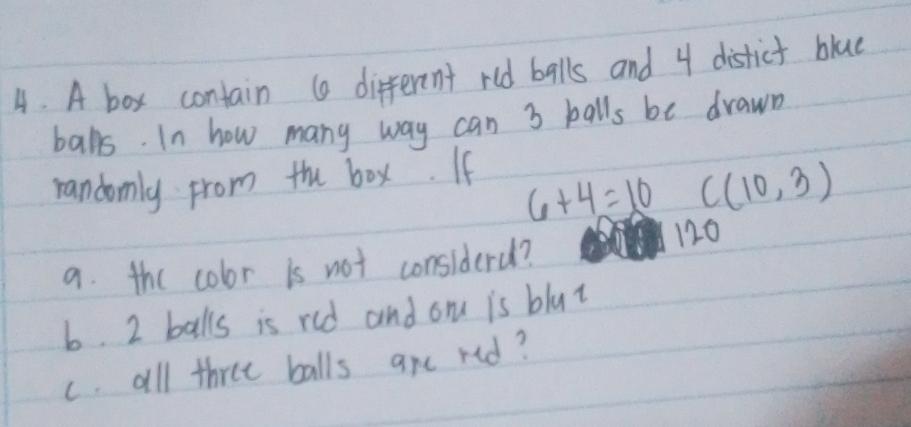 4. A box contain 6 different red balls and 4 distict blue
balls. In how many way can 3 balls be drawn
randomly from the box. If
6+4=10 C(10,3)
a. the color is not considerd? 120
b. 2 balls is red and one is blue
c. all three balls are red?